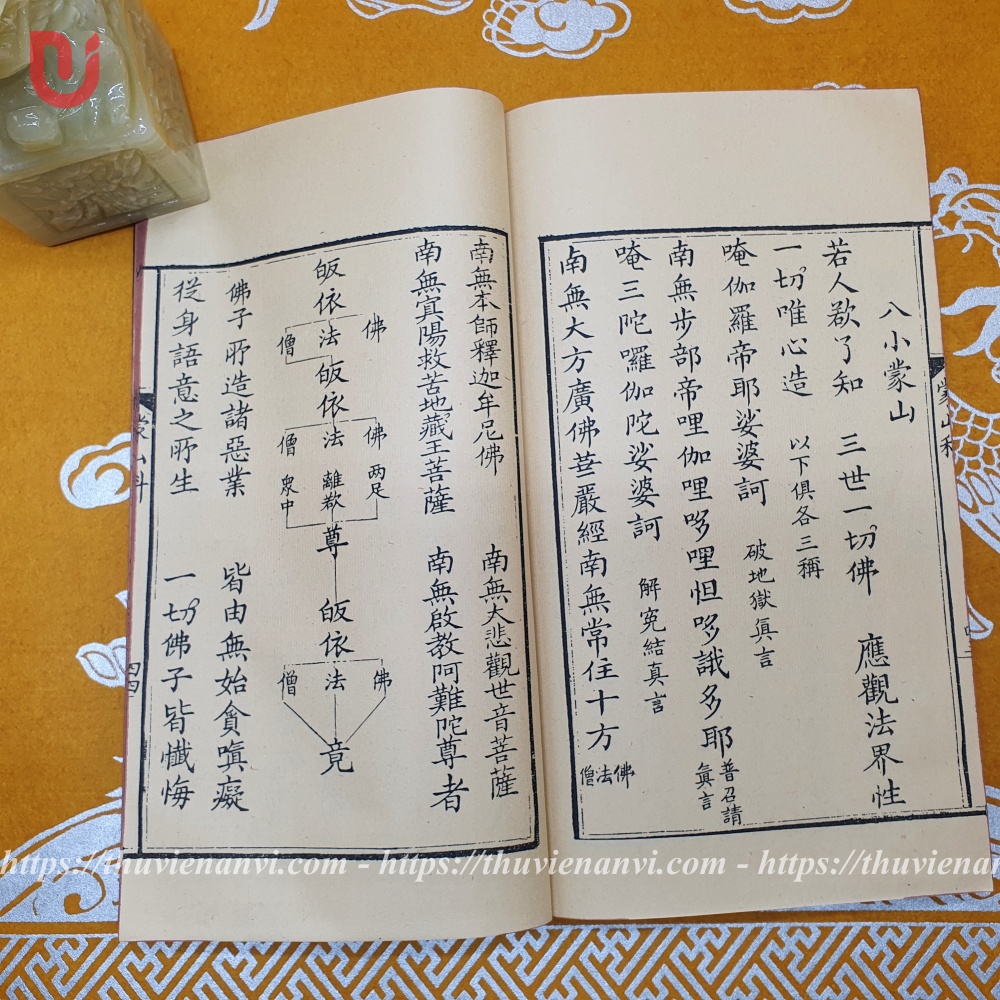 八小蒙山
若人欲了知 三世一切佛 應觀法界性
一切唯心造 以下俱各三稱
唵伽羅帝耶娑婆訶 破地獄眞言
南無步部帝哩伽哩哆哩怛哆誐多耶 普召請眞言
唵三陀囉伽陀娑婆訶 解冤結真言
南無大方廣佛華嚴經南無常住十方 佛法僧
蒙山科
南無本師釋迦牟尼佛 南無大悲觀世音菩薩
南無冥陽救苦地藏王菩薩 南無啟教阿難陀尊者
皈依 佛 法 僧 皈依 佛 两足 法 離欲 僧 衆中 尊 皈依 佛 法 僧 竟
佛子所造諸惡業 皆由無始貪嗔癡
從身語意之所生 一切佛子皆懺悔
蒙山科
四四
https://thuvienanvi.com - https://thuvienanvi.com - https://thuvienan